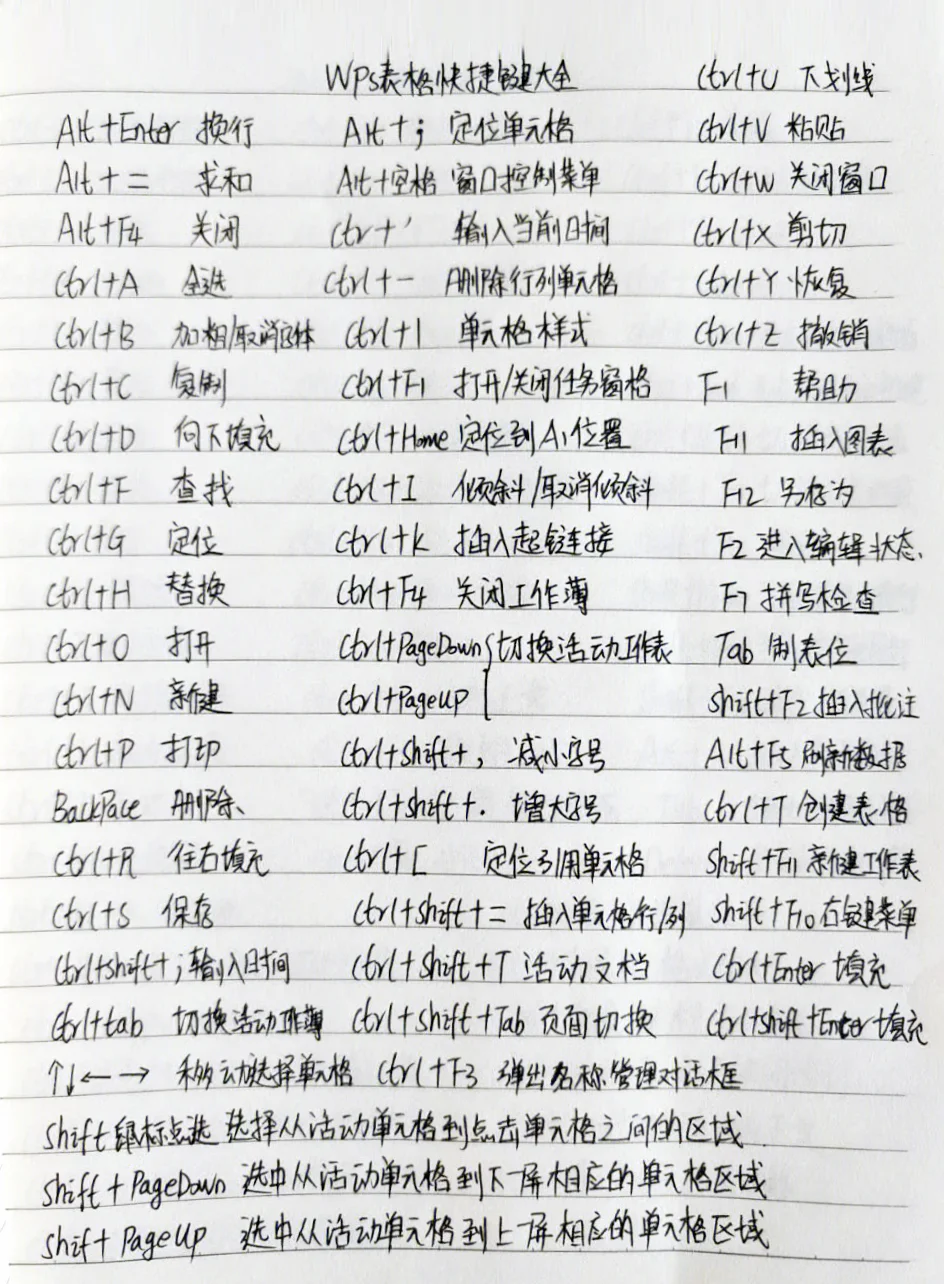 Wps表格快捷键大全 Ctrl+U 下划线
Alt+Enter 换行 Alt+; 定位单元格 Ctrl+V 粘贴
Alt+= 求和 Alt+空格 窗口控制菜单 Ctrl+W 关闭窗口
Alt+F4 关闭 Ctr+' 输入当前日间 Ctrl+X 剪切
Ctrl+A 全选 Ctrl+- 删除行列单元格 Ctrl+Y 恢复
Ctrl+B 加粗/取消字体 Ctrl+1 单元格样式 Ctrl+Z 撤销
Ctrl+C 复制 Ctrl+F1 打开/关闭任务窗格 F1 帮助
Ctrl+D 向下填充 Ctrl+Home 定位到A1位置 F11 插入图表
Ctrl+F 查找 Ctrl+I 倾斜/取消倾斜 F12 另存为
Ctrl+G 定位 Ctrl+K 插入超链接 F2 进入编辑状态
Ctrl+H 替换 Ctrl+F4 关闭工作薄 F7 拼写检查
Ctrl+O 打开 Ctrl+PageDown 切换活动工作表 Tab 制表位
Ctrl+N 新建 Ctrl+PageUp Shift+F2 插入批注
Ctrl+P 打印 Ctrl+Shift+, 减小字号 Alt+F5 刷新数据
BackPace 删除 Ctrl+Shift+. 增大字号 Ctrl+T 创建表格
Ctrl+R 往右填充 Ctrl+[ 定位引用单元格 Shift+F11 新建工作表
Ctrl+S 保存 Ctrl+Shift+= 插入单元格行/列 Shift+F10 右键菜单
Ctrl+Shift+; 输入日间 Ctrl+Shift+T 活动文档 Ctrl+Enter 填充
Ctrl+tab 切换活动工作薄 Ctrl+Shift+Tab 页面切换 Ctrl+Shift+Enter 填充
↑↓←→ 移动选择单元格 Ctrl+F3 弹出名称管理对话框
Shift 鼠标点选 选择从活动单元格到点击单元格之间的区域
Shift+PageDown 选中从活动单元格到下一屏相应的单元格区域
Shift+PageUp 选中从活动单元格到上一屏相应的单元格区域